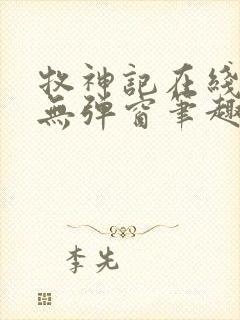 牧神記在綫
無弹窗笔趣
李先